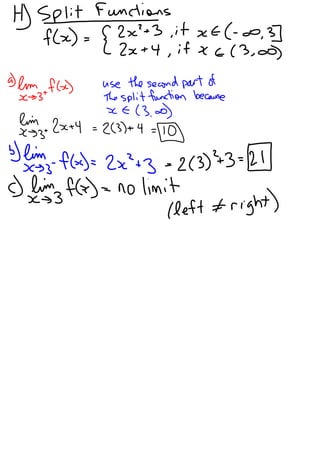 H) Split Functions
f(x) = { 2x²+3 , if x∈(-∞,3]
2x+4 , if x∈(3,∞)
a) lim x→3⁺ f(x) use the second part of
The split function because
x∈(3,∞)
lim x→3⁺ 2x+4 = 2(3)+4 = 10
b) lim x→3⁻ f(x) = 2x²+3 = 2(3)²+3 = 21
c) lim x→3 f(x) = no limit
(left ≠ right)